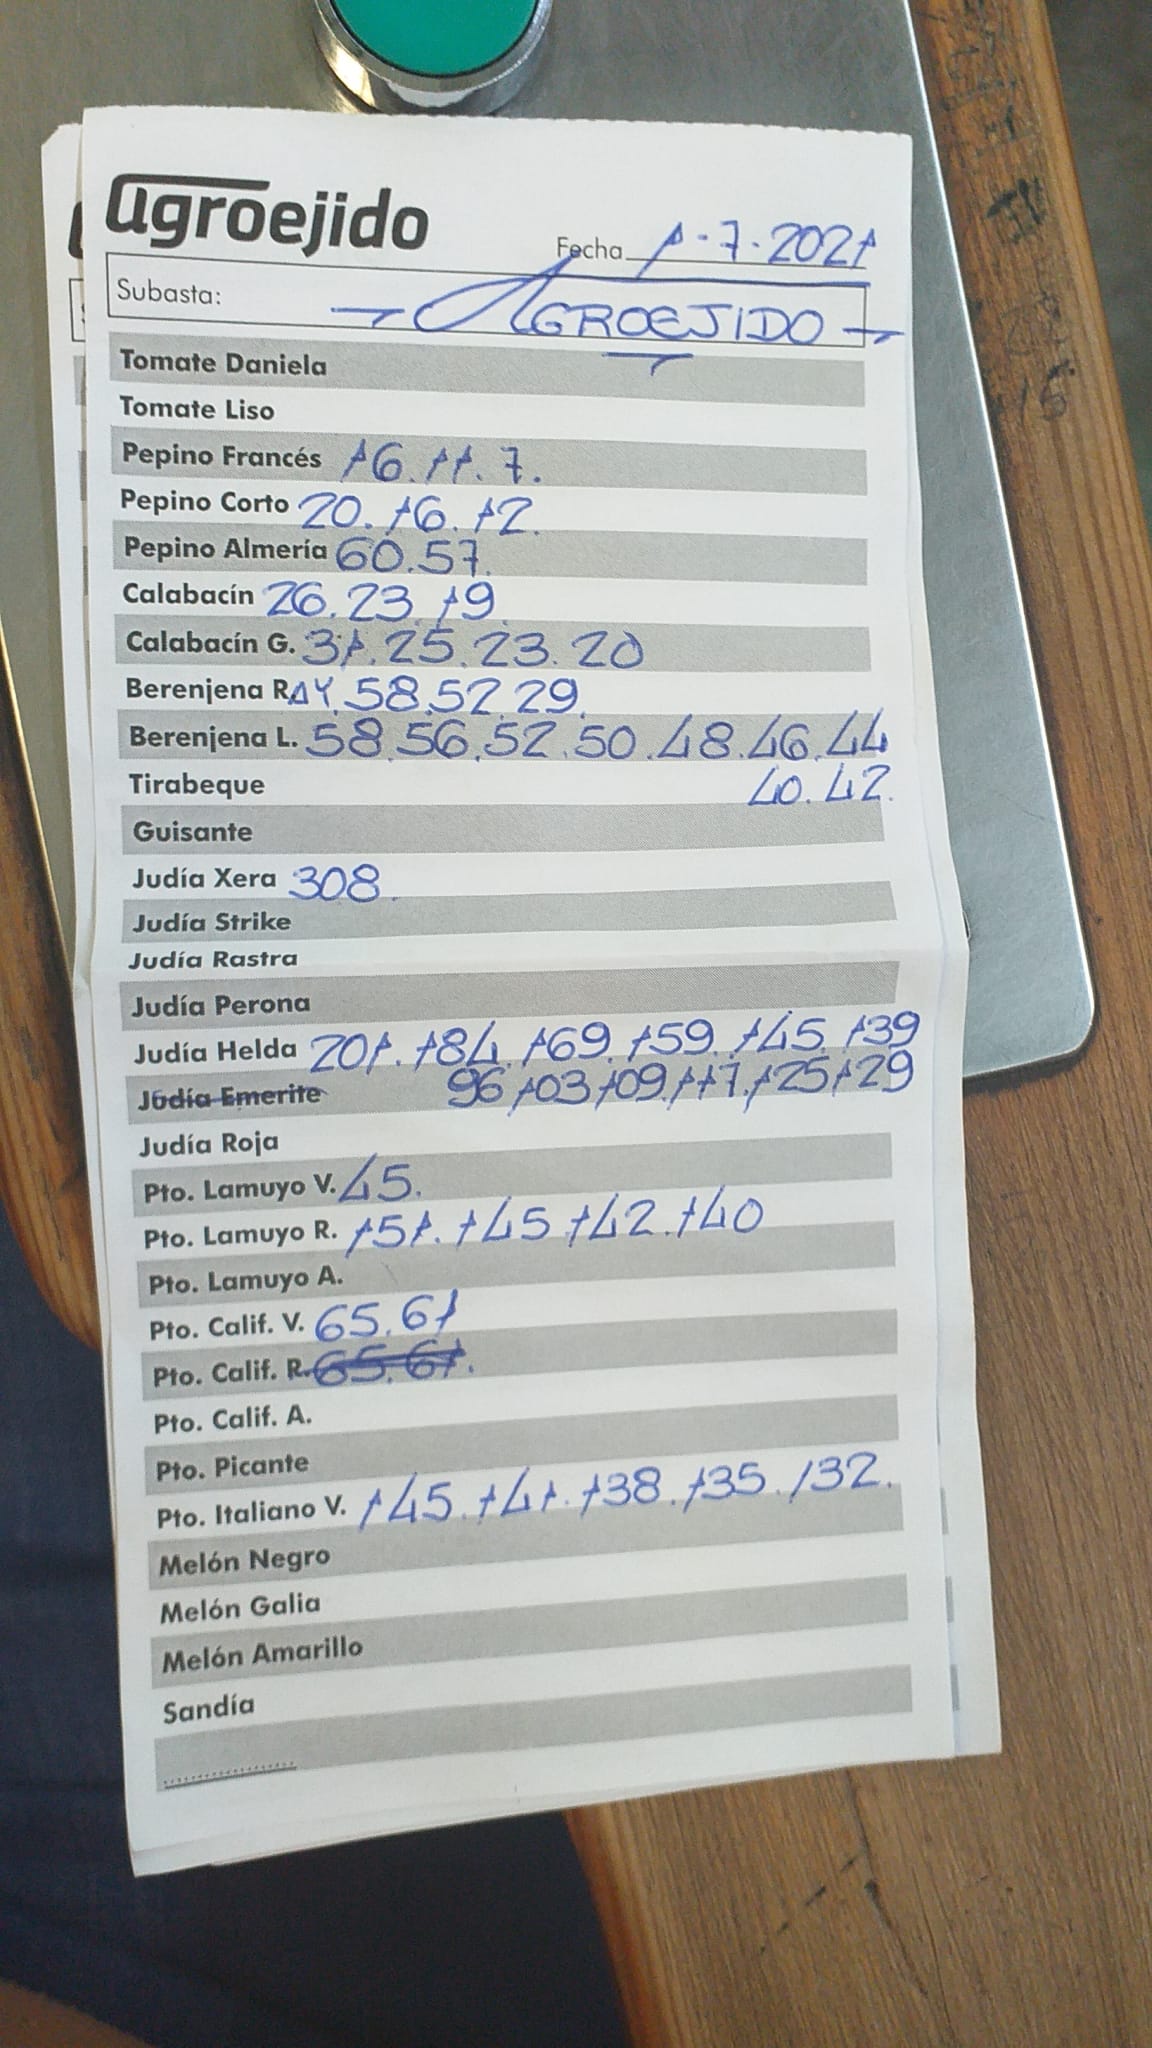 agroejido
Fecha 1-7-2021
Subasta: AGROEJIDO
Tomate Daniela
Tomate Liso
Pepino Francés 16.11.7.
Pepino Corto 20.16.12.
Pepino Almería 60.57.
Calabacín 26.23.19
Calabacín G. 31.25.23.20
Berenjena RAY. 58.52.29.
Berenjena L. 58.56.52.50.48.46.44
Tirabeque 40.42.
Guisante
Judía Xera 308.
Judía Strike
Judía Rastra
Judía Perona
Judía Helda 201.184.169.159.145.139
Judía Emerite 96.103.109.117.125.129
Judía Roja
Pto. Lamuyo V. 45.
Pto. Lamuyo R. 151.145.142.140
Pto. Lamuyo A.
Pto. Calif. V. 65.61
Pto. Calif. R. 65.61.
Pto. Calif. A.
Pto. Picante
Pto. Italiano V. 145.141.138.135.132.
Melón Negro
Melón Galia
Melón Amarillo
Sandía